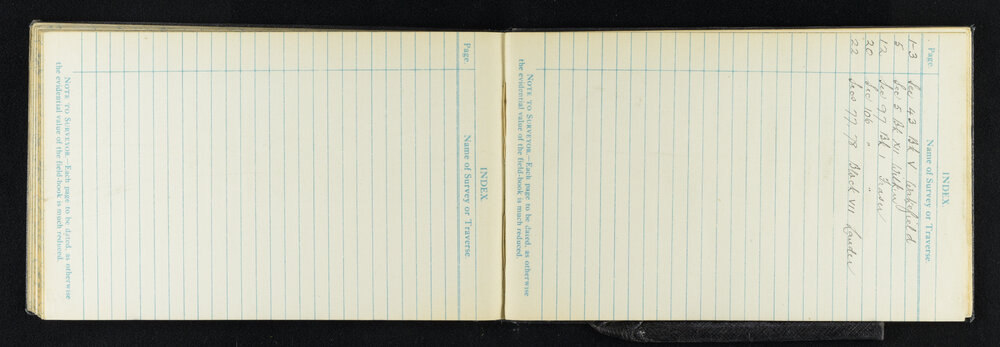 INDEX.
Page. Name of Survey or Traverse.
NOTE TO SURVEYOR.—Each page to be dated, as otherwise
the evidential value of the field-book is much reduced.
INDEX
Page. Name of Survey or Traverse.
1-3 Sec 43 Bk V Wakefield
5 Sec 5 Bk XI
12 Sec 97 Bk 1 Fraser
20 Sec 106 " "
22 Secs 77, 78 Block VII Lauder
NOTE TO SURVEYOR.—Each page to be dated, as otherwise
the evidential value of the field-book is much reduced.